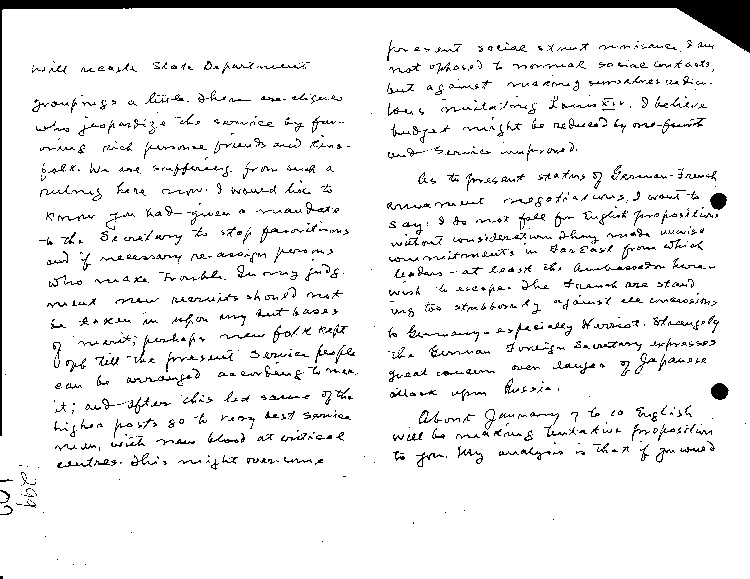 will recast State Department
groupings a little. There are cliques
who jeopardize the service by fav-
oring rich personal friends and kins-
folk. We are suffering from such a
ruling here now. I would like to
know you had given a mandate
to the Secretary to stop favoritisms
and if necessary re-assign persons
who make trouble. In my judg-
ment new recruits should not
be taken in upon any but bases
of merit; perhaps new folk kept
off till the present service people
can be arranged according to mer-
it; and after this let some of the
higher posts go to very best service
men, with new blood at critical
centres. This might overcome
present social strut nuisance. I am
not opposed to normal social contacts,
but against making ourselves ridicu-
lous imitating Louis XIV. I believe
budget might be reduced by one-fourth
and service improved.
As to present status of German-French
armament negotiations, I want to
say: I do not fall for English proposition
without consideration. They made unwise
commitments in Far East from which
leaders - at least the Ambassador here -
wish to escape. The French are stand-
ing too stubbornly against all concessions
to Germany - especially Herriot. Strangely
the German Foreign Secretary expresses
great concern over danger of Japanese
attack upon Russia.
About January 7 to 10 English
will be making tentative proposition
to you. My analysis is that if you would
299